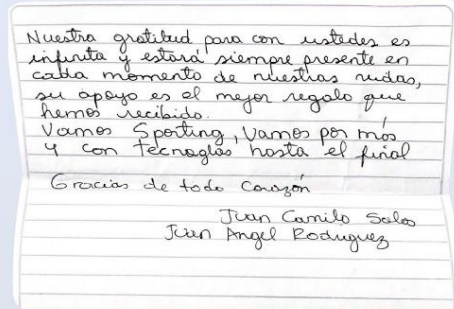 Nuestra gratitud para con ustedes es
infinita y estará siempre presente en
cada momento de nuestras vidas,
su apoyo es el mejor regalo que
hemos recibido.
Vamos Sporting, Vamos por más
y con tecnoglas hasta el final
Gracias de todo corazón
Juan Camilo Salas
Juan Angel Rodriguez